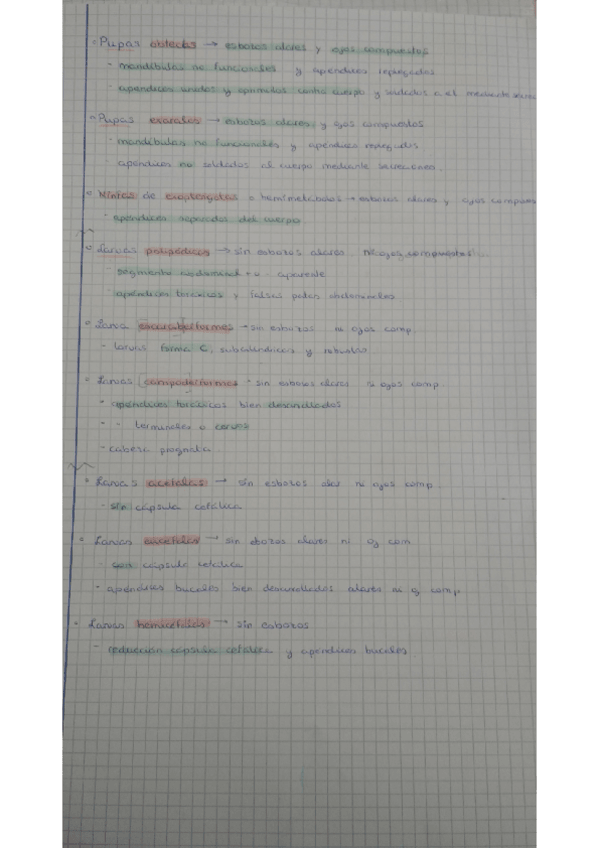 Pupas obtectas → esbozos alares y ojos compuestos
- mandíbulas no funcionales y apéndices replegados
- apéndices unidos y oprimidos contra cuerpo y soldados a el mediante
Pupas exaratas → esbozos alares y ojos compuestos
- mandíbulas no funcionales y apéndices replegados
- apéndices no soldados al cuerpo mediante secreciones.
Ninfas de exopterigotas o hemimetábolos → esbozos alares y ojos compues
- apéndices separados del cuerpo
Larvas polipódicas → sin esbozos alares Ni ojos compuestos
- segmento abdominal + o - aparente
- apéndices torácicos y falsas patas abdominales
Larva escarabeiformes → sin esbozos ni ojos comp.
- larvas forma C, subcilíndricas y robustas
Larvas campodeiformes → sin esbozos alares ni ojos comp
- apéndices torácicos bien desarrollados
- " terminales o cercos
- cabeza prognata
Larvas acéfalas → sin esbozos alar ni ojos comp.
- sin cápsula cefálica
Larvas eucéfalas → sin esbozos alares ni oj com
- con cápsula cefálica
- apéndices bucales bien desarrollados alares ni oj comp
Larvas hemicéfalas → sin esbozos
- reducción cápsula cefálica y apéndices bucales